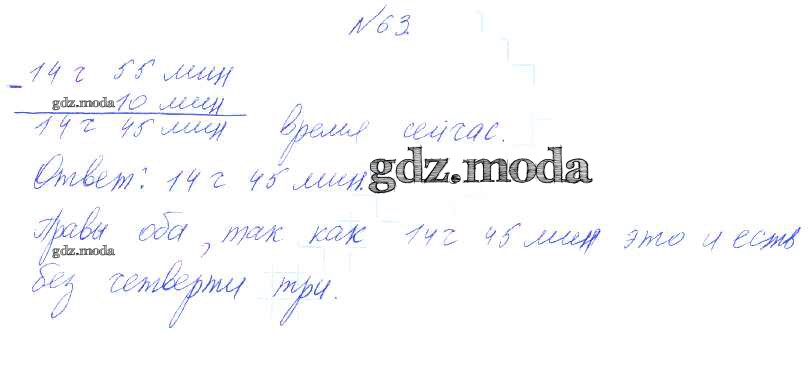 №63.
- 14 г 55 мин
gdz.moda 10 мин
14 г 45 мин время сейчас.
Ответ: 14 г 45 мин. gdz.moda
Правы оба, так как 14 г 45 мин это и есть
gdz.moda
без четверти три.